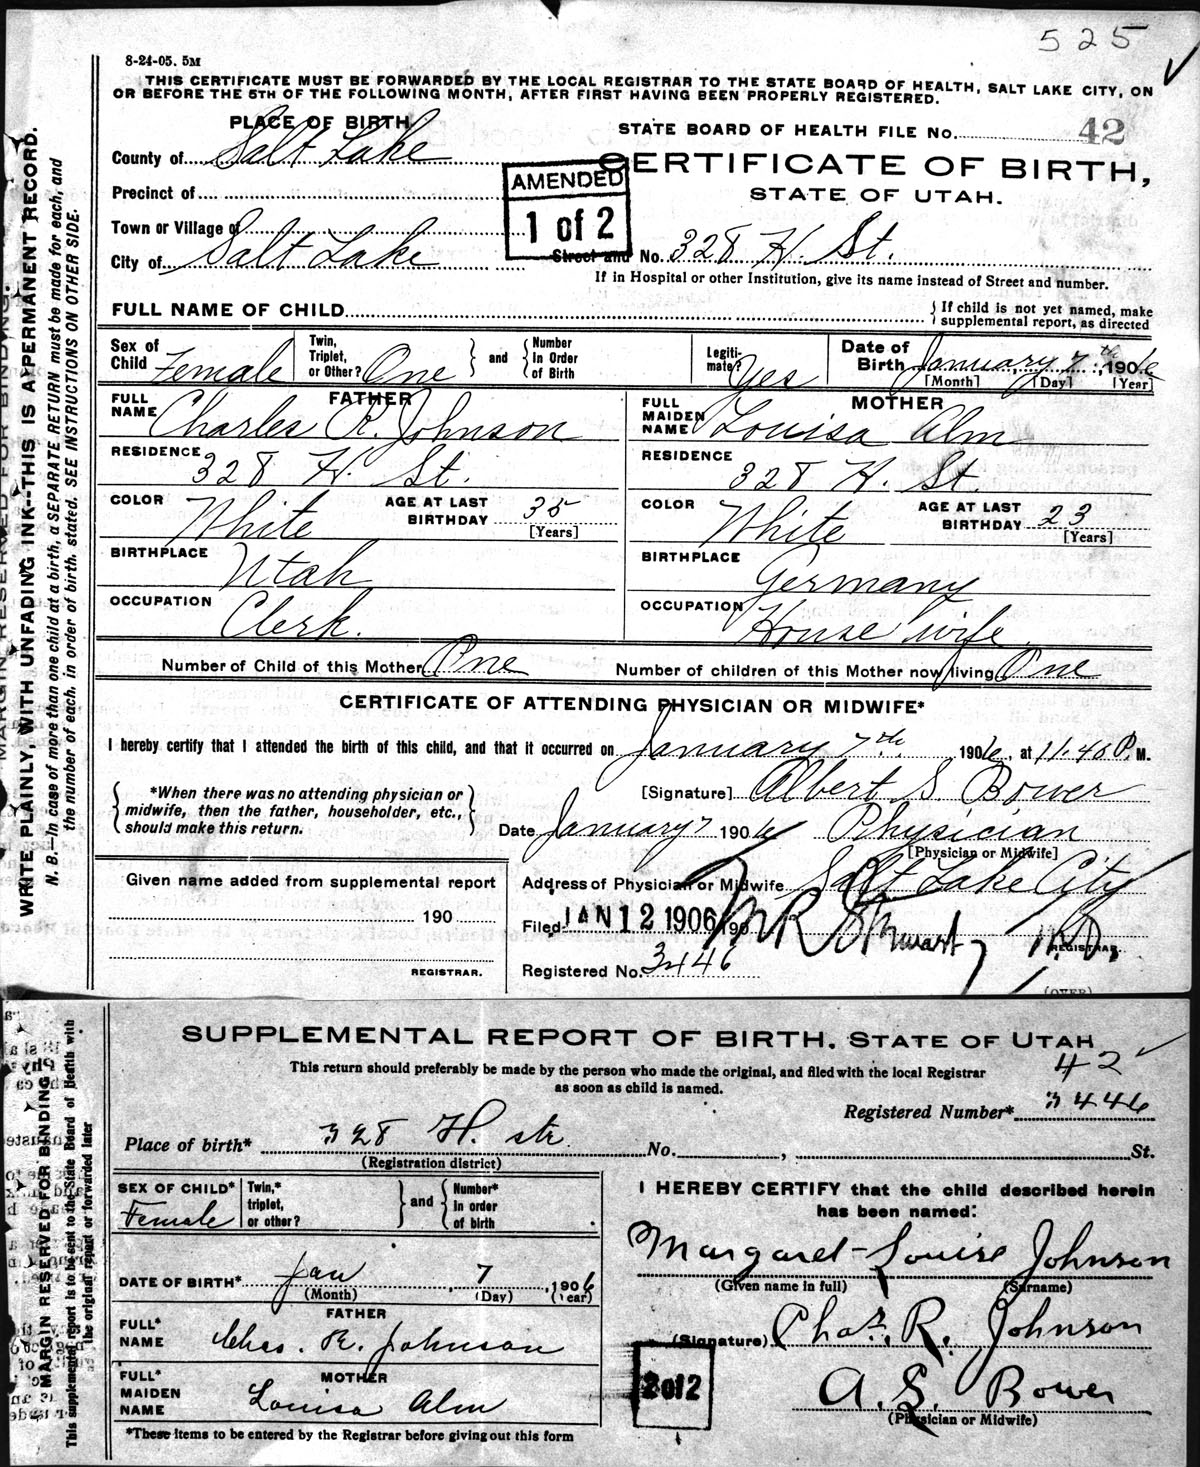 525
8-24-05. 5M
THIS CERTIFICATE MUST BE FORWARDED BY THE LOCAL REGISTRAR TO THE STATE BOARD OF HEALTH, SALT LAKE CITY, ON
OR BEFORE THE 5TH OF THE FOLLOWING MONTH, AFTER FIRST HAVING BEEN PROPERLY REGISTERED.
PLACE OF BIRTH
STATE BOARD OF HEALTH FILE No. 42
County of Salt Lake
CERTIFICATE OF BIRTH,
STATE OF UTAH.
Precinct of
AMENDED
1 of 2
Town or Village of
City of Salt Lake
Street and No. 328 H St.
If in Hospital or other Institution, give its name instead of Street and number.
FULL NAME OF CHILD
If child is not yet named, make
supplemental report, as directed
Sex of Child Female
Twin, Triplet, or Other? One
and
Number In Order of Birth
Legitimate? Yes
Date of Birth January 7th, 1906
[Month] [Day] [Year]
FATHER
FULL NAME Charles R. Johnson
RESIDENCE 328 H. St.
COLOR White
AGE AT LAST BIRTHDAY 35
[Years]
BIRTHPLACE Utah
OCCUPATION Clerk.
MOTHER
FULL MAIDEN NAME Louisa Alm
RESIDENCE 328 H. St.
COLOR White
AGE AT LAST BIRTHDAY 23
[Years]
BIRTHPLACE Germany
OCCUPATION House wife
Number of Child of this Mother One
Number of children of this Mother now living One
CERTIFICATE OF ATTENDING PHYSICIAN OR MIDWIFE*
I hereby certify that I attended the birth of this child, and that it occurred on January 7th. 1906, at 11.40 P. M.
*When there was no attending physician or
midwife, then the father, householder, etc.,
should make this return.
[Signature] Albert S Bower
Date January 7 1906 Physician
[Physician or Midwife]
Given name added from supplemental report
190
REGISTRAR.
Address of Physician or Midwife Salt Lake City
Filed JAN 12 1906 190
REGISTRAR.
Registered No. 3446
(OVER)
MARGIN RESERVED FOR BINDING.
WRITE PLAINLY, WITH UNFADING INK--THIS IS A PERMANENT RECORD.
N. B.—In case of more than one child at a birth, a SEPARATE RETURN must be made for each, and
the number of each, in order of birth, stated. SEE INSTRUCTIONS ON OTHER SIDE.
SUPPLEMENTAL REPORT OF BIRTH. STATE OF UTAH
42
This return should preferably be made by the person who made the original, and filed with the local Registrar
as soon as child is named.
Registered Number* 3446
Place of birth* 328 H. str. No. , St.
(Registration district)
SEX OF CHILD* Female
Twin,* triplet, or other?
and
Number* In order of birth
DATE OF BIRTH* Jan 7, 1906
(Month) (Day) (Year)
FATHER
FULL* NAME Chas. R. Johnson
MOTHER
FULL* MAIDEN NAME Louisa Alm
*These items to be entered by the Registrar before giving out this form
I HEREBY CERTIFY that the child described herein
has been named:
Margaret Louise Johnson
(Given name in full) (Surname)
(Signature) Chas. R. Johnson
2 of 2
A. S. Bower
(Physician or Midwife)
MARGIN RESERVED FOR BINDING
This supplemental report is to be sent to the State Board of Health with
the original report or forwarded later